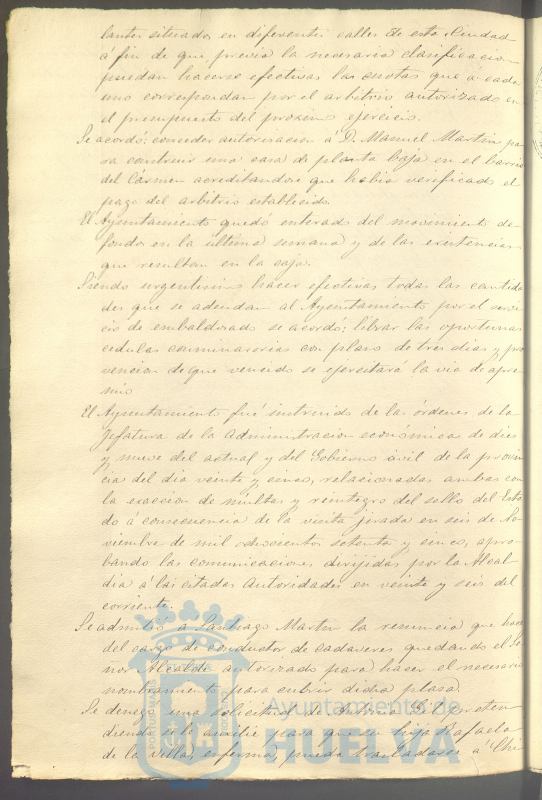 lantes situados en diferentes calles de esta Ciudad
á fin de que previa la necesaria clasificacion
puedan hacerse efectivas las cuotas que á cada
uno correspondan por el arbitrio autorizado en
el presupuesto del proximo ejercicio.
Se acordó: conceder autorizacion á D. Manuel Martin pa
ra construir una casa de planta baja en el barrio
del Cármen acreditandose que habia verificado el
pago del arbitrio establecido.
El Ayuntamiento quedó enterado del movimiento de
fondos en la última semana y de las existencias
que resultan en la caja.
Siendo urgentisimo hacer efectivas todas las cantida
des que se adeudan al Ayuntamiento por el servi
cio de embaldosado se acordó: librar las oportunas
cedulas conminatorias con plazo de tres dias y pre
vencion de que vencido se ejercitará la via de apre
mio
El Ayuntamiento fué instruido de las órdenes de la
Jefatura de la Administracion económica de diez
y nueve del actual y del Gobierno civil de la provin
cia del dia veinte y cinco, relacionadas ambas con
la exaccion de multas y reintegro del sello del Esta
do á consecuencia de la visita jirada en seis de No
viembre de mil ochocientos setenta y cinco, apro
bando las comunicaciones dirijidas por la Alcal
dia á las citadas Autoridades en veinte y seis del
corriente.
Se admitió á Santiago Martin la renuncia que hace
del cargo de conductor de cadaveres quedando el Se
ñor Alcalde autorizado para hacer el necesario
nombramiento para cubrir dicha plaza.
Se denegó una solicitud de D. preten
diendo se le auxilie para que su hija Rafaela
de la Villa, enferma, pueda trasladarse á Chi
Ayuntamiento de
HUELVA